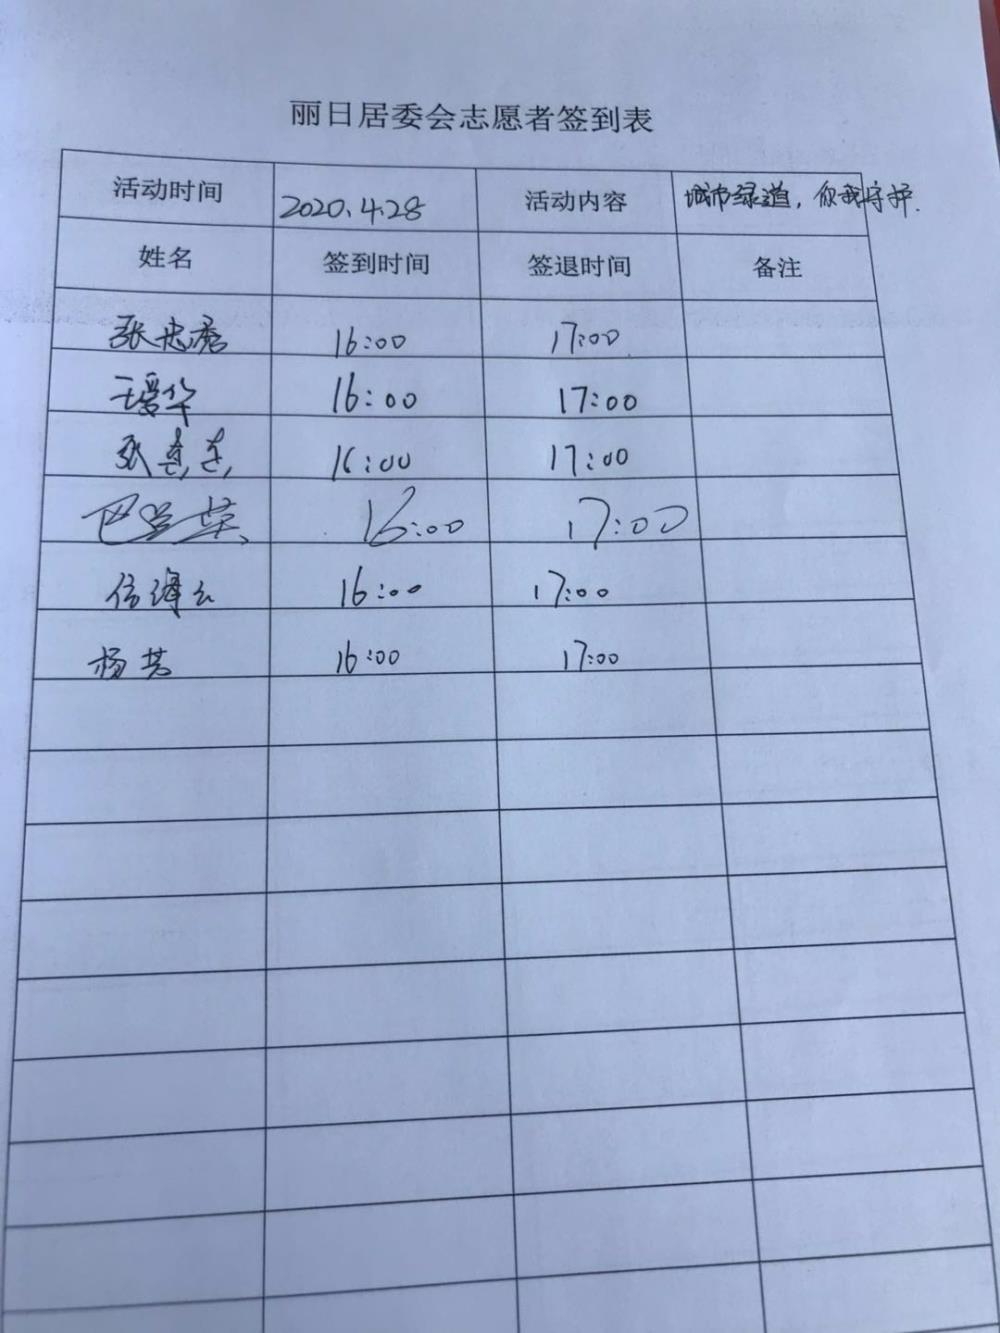 丽日居委会志愿者签到表
活动时间 2020.4.28 活动内容 城市绿道，你我守护.
姓名 签到时间 签退时间 备注
张忠 16:00 17:00
王爱华 16:00 17:00
张 16:00 17:00
巴兰英 16:00 17:00
16:00 17:00
杨芳 16:00 17:00